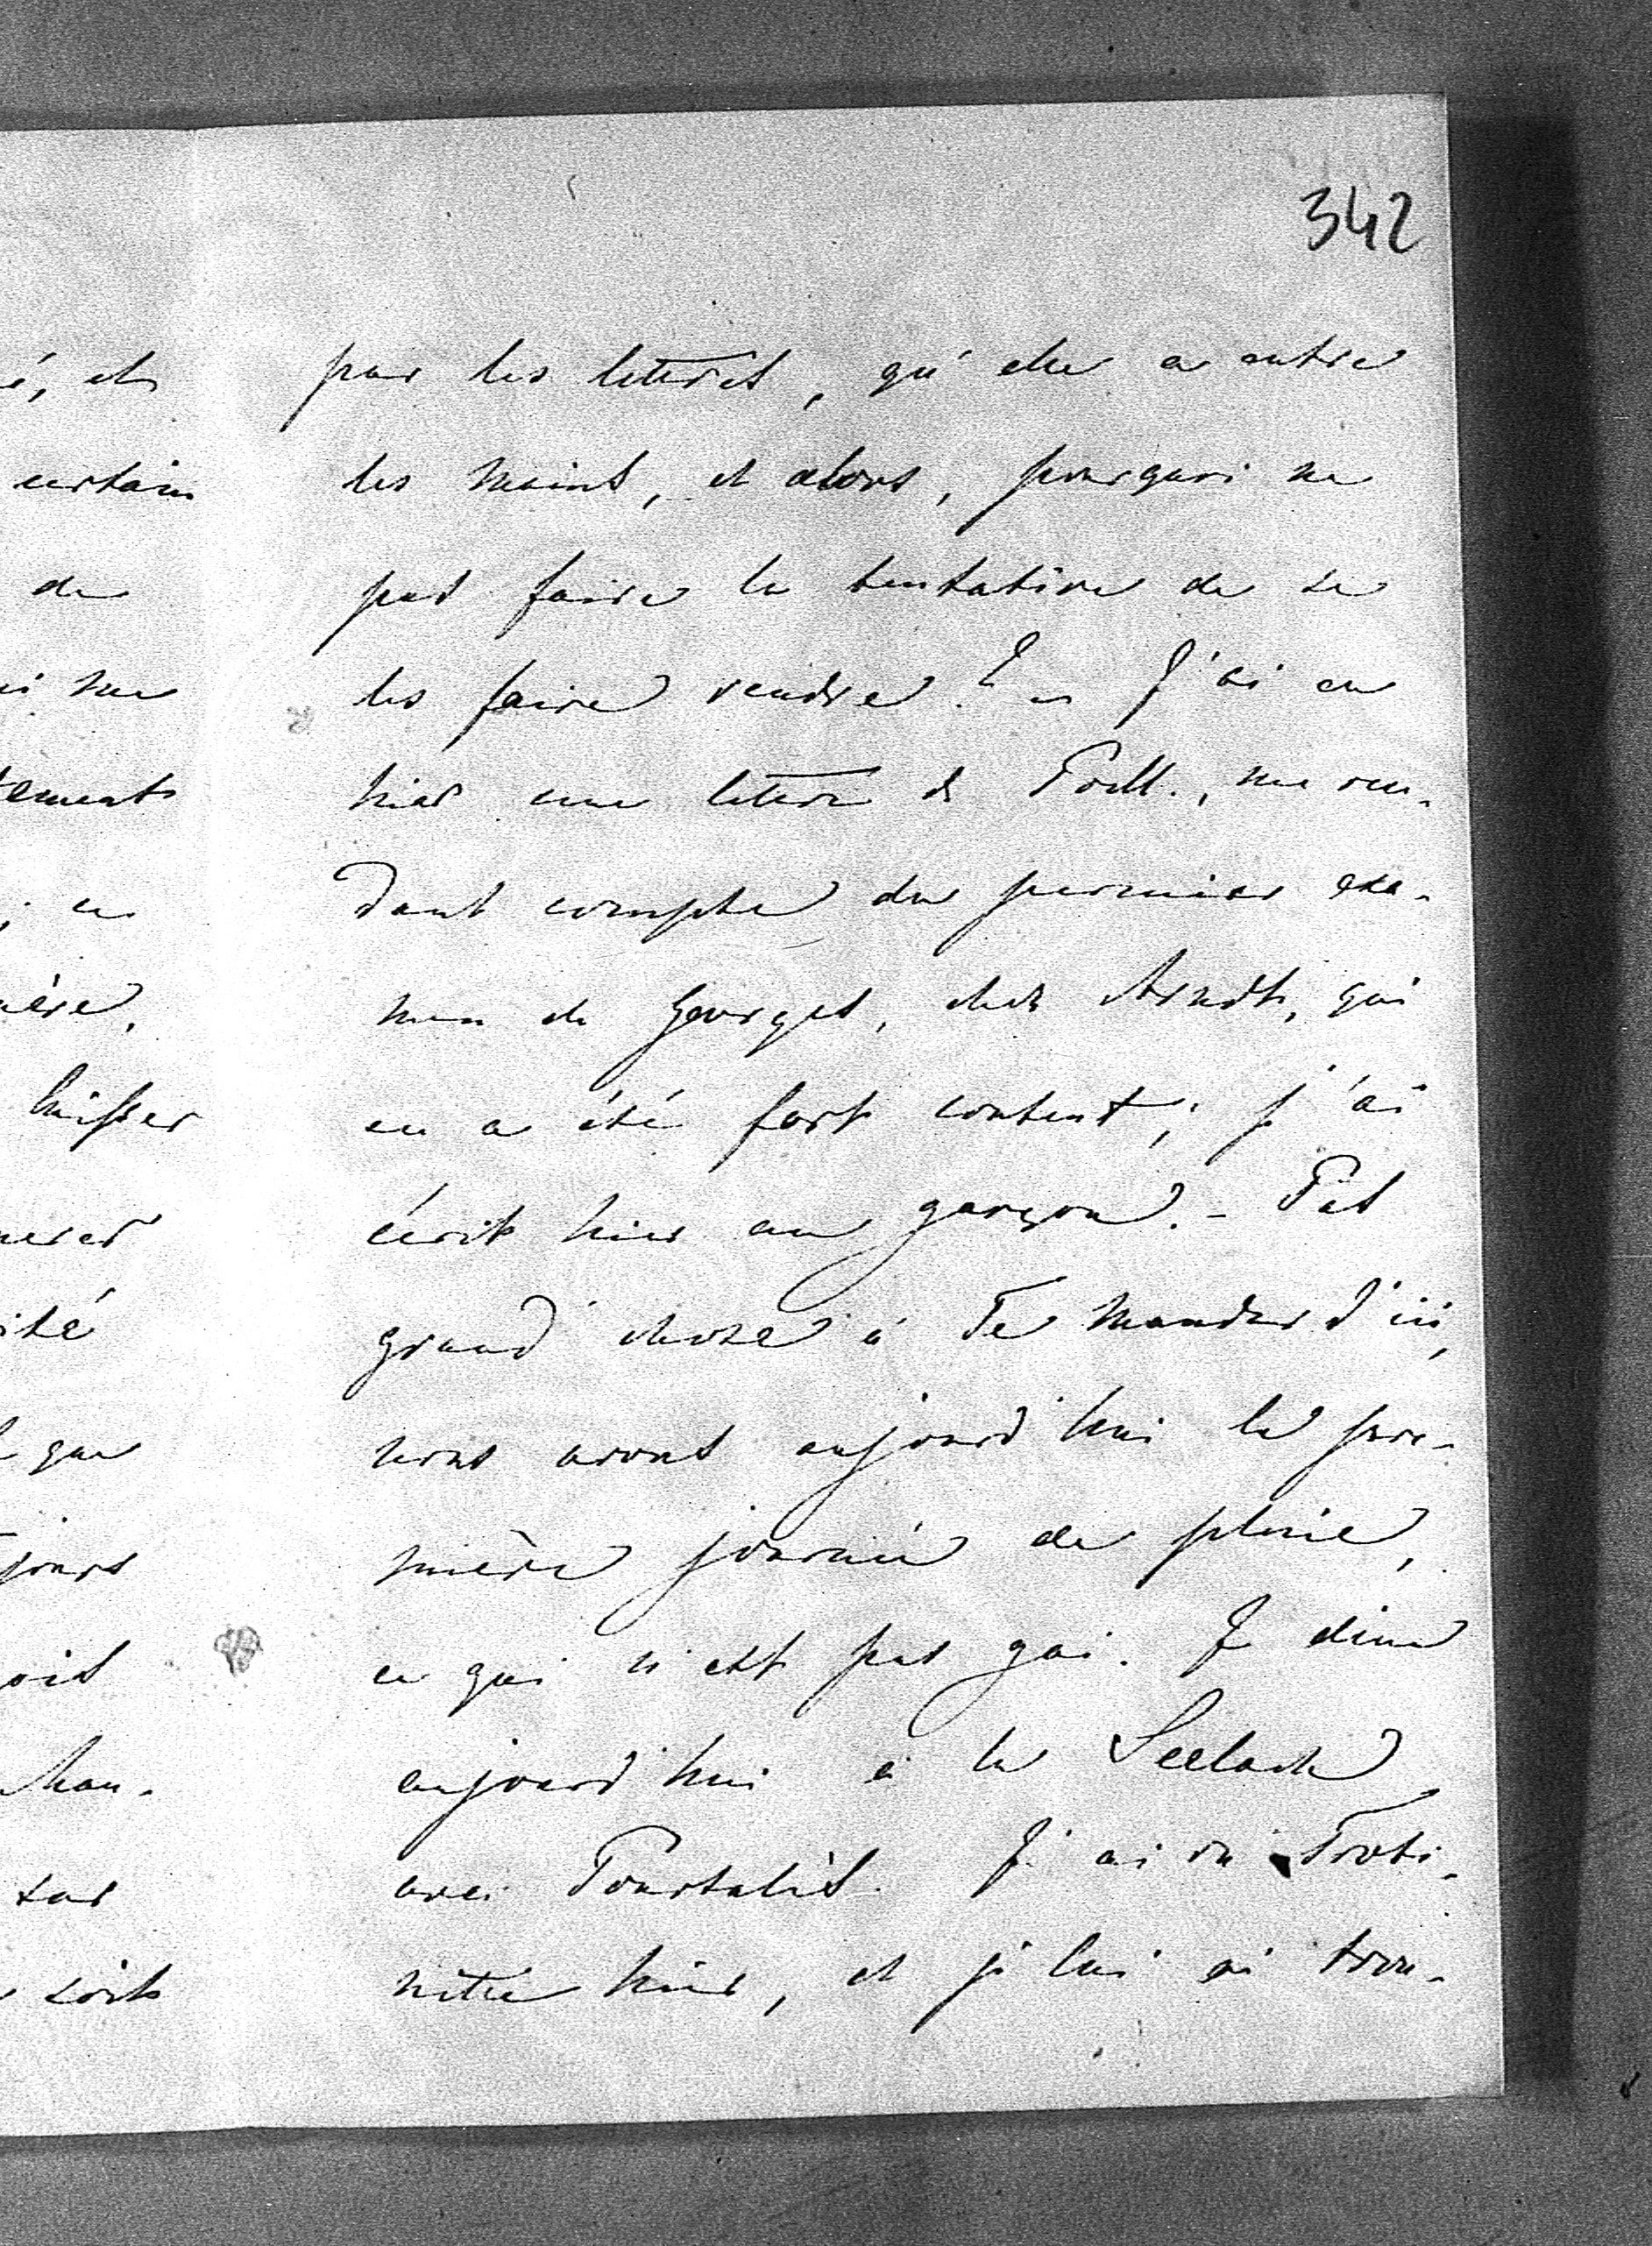 342
é, et
certain
de
ne
tement
en
ère,
laisser
ité
que
jours
soit
par les lettres, qu'elle a entre
les mains, et alors, pourquoi ne
pas faire la tentative de se
les faire rendre? – J'ai eu
hier une lettre de Poell., me ren-
dant compte du premier exa-
men de Georges, chez Arndt, qui
en a été fort content; j'ai
écrit hier au garçon. – Pas
grand' chose à Te mander d'ici,
nous avons aujourd'hui la pre-
mière journée de pluie,
ce qui n'est pas gai. Je dine
aujourd'hui à la Seelach,
avec Pourtalès. J'ai vu Troti-
nette hier, et je lui ai trou-